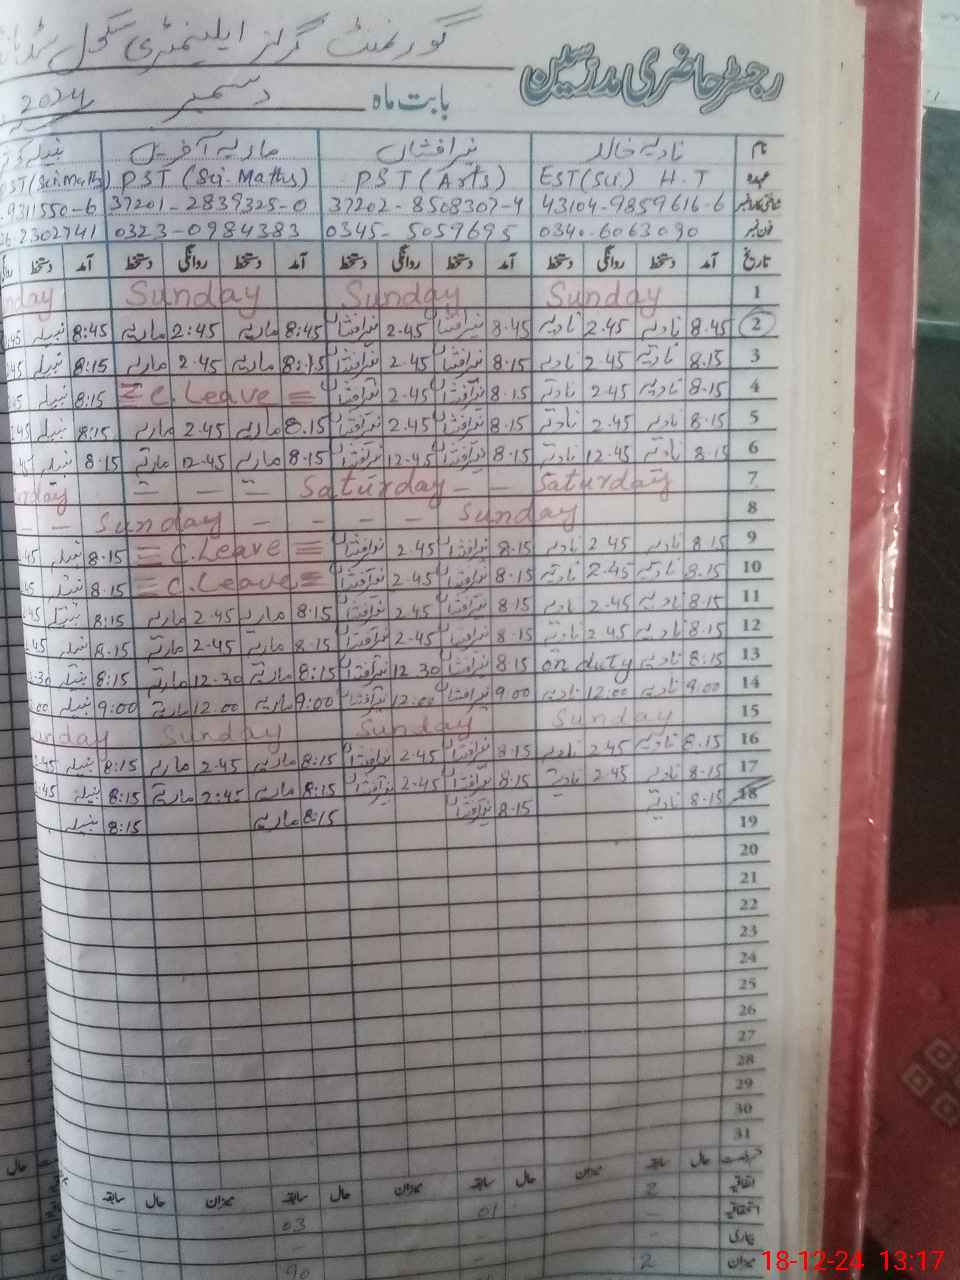 گورنمنٹ گرلز ایلیمنٹری سکول
رجسٹر حاضری مدرسین
بابت ماہ دسمبر 2024
نام نادیہ خالد نورافشاں ماریہ آفرین نبیلہ
عہدہ EST(Sci) H.T PST (Arts) PST (Sci-Maths) PST(Sci.Maths)
شناختی کارڈ نمبر 43104-9859616-6 37202-8508307-4 37201-2839325-0 9311550-6
فون نمبر 0340-6063090 0345-5059695 0323-0984383 2302741
تاریخ آمد دستخط روانگی دستخط آمد دستخط روانگی دستخط آمد دستخط روانگی دستخط آمد دستخط
1 Sunday Sunday Sunday
2 8.45 نادیہ 2.45 نادیہ 8.45 نورافشاں 2.45 نورافشاں 8:45 ماریہ 2:45 ماریہ 8:45 نبیلہ
3 8.15 نادیہ 2.45 نادیہ 8.15 نورافشاں 2.45 نورافشاں 8:15 ماریہ 2.45 ماریہ 8:15 نبیلہ
4 8.15 نادیہ 2.45 نادیہ 8.15 نورافشاں 2.45 نورافشاں C.Leave 8:15 نبیلہ
5 8.15 نادیہ 2.45 نادیہ 8.15 نورافشاں 2.45 نورافشاں 8.15 ماریہ 2.45 ماریہ 8:15 نبیلہ
6 8.15 نادیہ 12.45 نادیہ 8.15 نورافشاں 12.45 نورافشاں 8.15 ماریہ 12.45 ماریہ 8.15 نبیلہ
7 Saturday - - Saturday - - -
8 Sunday - - - - Sunday - -
9 8.15 نادیہ 2.45 نادیہ 8.15 نورافشاں 2.45 نورافشاں C.Leave 8.15 نبیلہ
10 8.15 نادیہ 2.45 نادیہ 8.15 نورافشاں 2.45 نورافشاں C.Leave 8.15 نبیلہ
11 8.15 نادیہ 2.45 نادیہ 8.15 نورافشاں 2.45 نورافشاں 8:15 ماریہ 2.45 ماریہ 8:15 نبیلہ
12 8.15 نادیہ 2.45 نادیہ 8.15 نورافشاں 2.45 نورافشاں 8.15 ماریہ 2.45 ماریہ 8.15 نبیلہ
13 8:15 نادیہ on duty 8.15 نورافشاں 12.30 نورافشاں 8:15 ماریہ 12.30 ماریہ 8:15 نبیلہ
14 9.00 نادیہ 12:00 نادیہ 9.00 نورافشاں 12:00 نورافشاں 9:00 ماریہ 12.00 ماریہ 9:00 نبیلہ
15 Sunday Sunday Sunday
16 8.15 نادیہ 2.45 نادیہ 8.15 نورافشاں 2.45 نورافشاں 8:15 ماریہ 2.45 ماریہ 8:15 نبیلہ
17 8.15 نادیہ 2.45 نادیہ 8.15 نورافشاں 2.45 نورافشاں 8:15 ماریہ 2:45 ماریہ 8:15 نبیلہ
18 8.15 نادیہ 8.15 نورافشاں 8:15 ماریہ 8:15 نبیلہ
19
20
21
22
23
24
25
26
27
28
29
30
31
رخصت حال سابقہ میزان حال سابقہ میزان حال سابقہ میزان حال سابقہ
اتفاقیہ 2 01 03
استحقاقیہ
بیماری
میزان 2
18-12-24 13:17